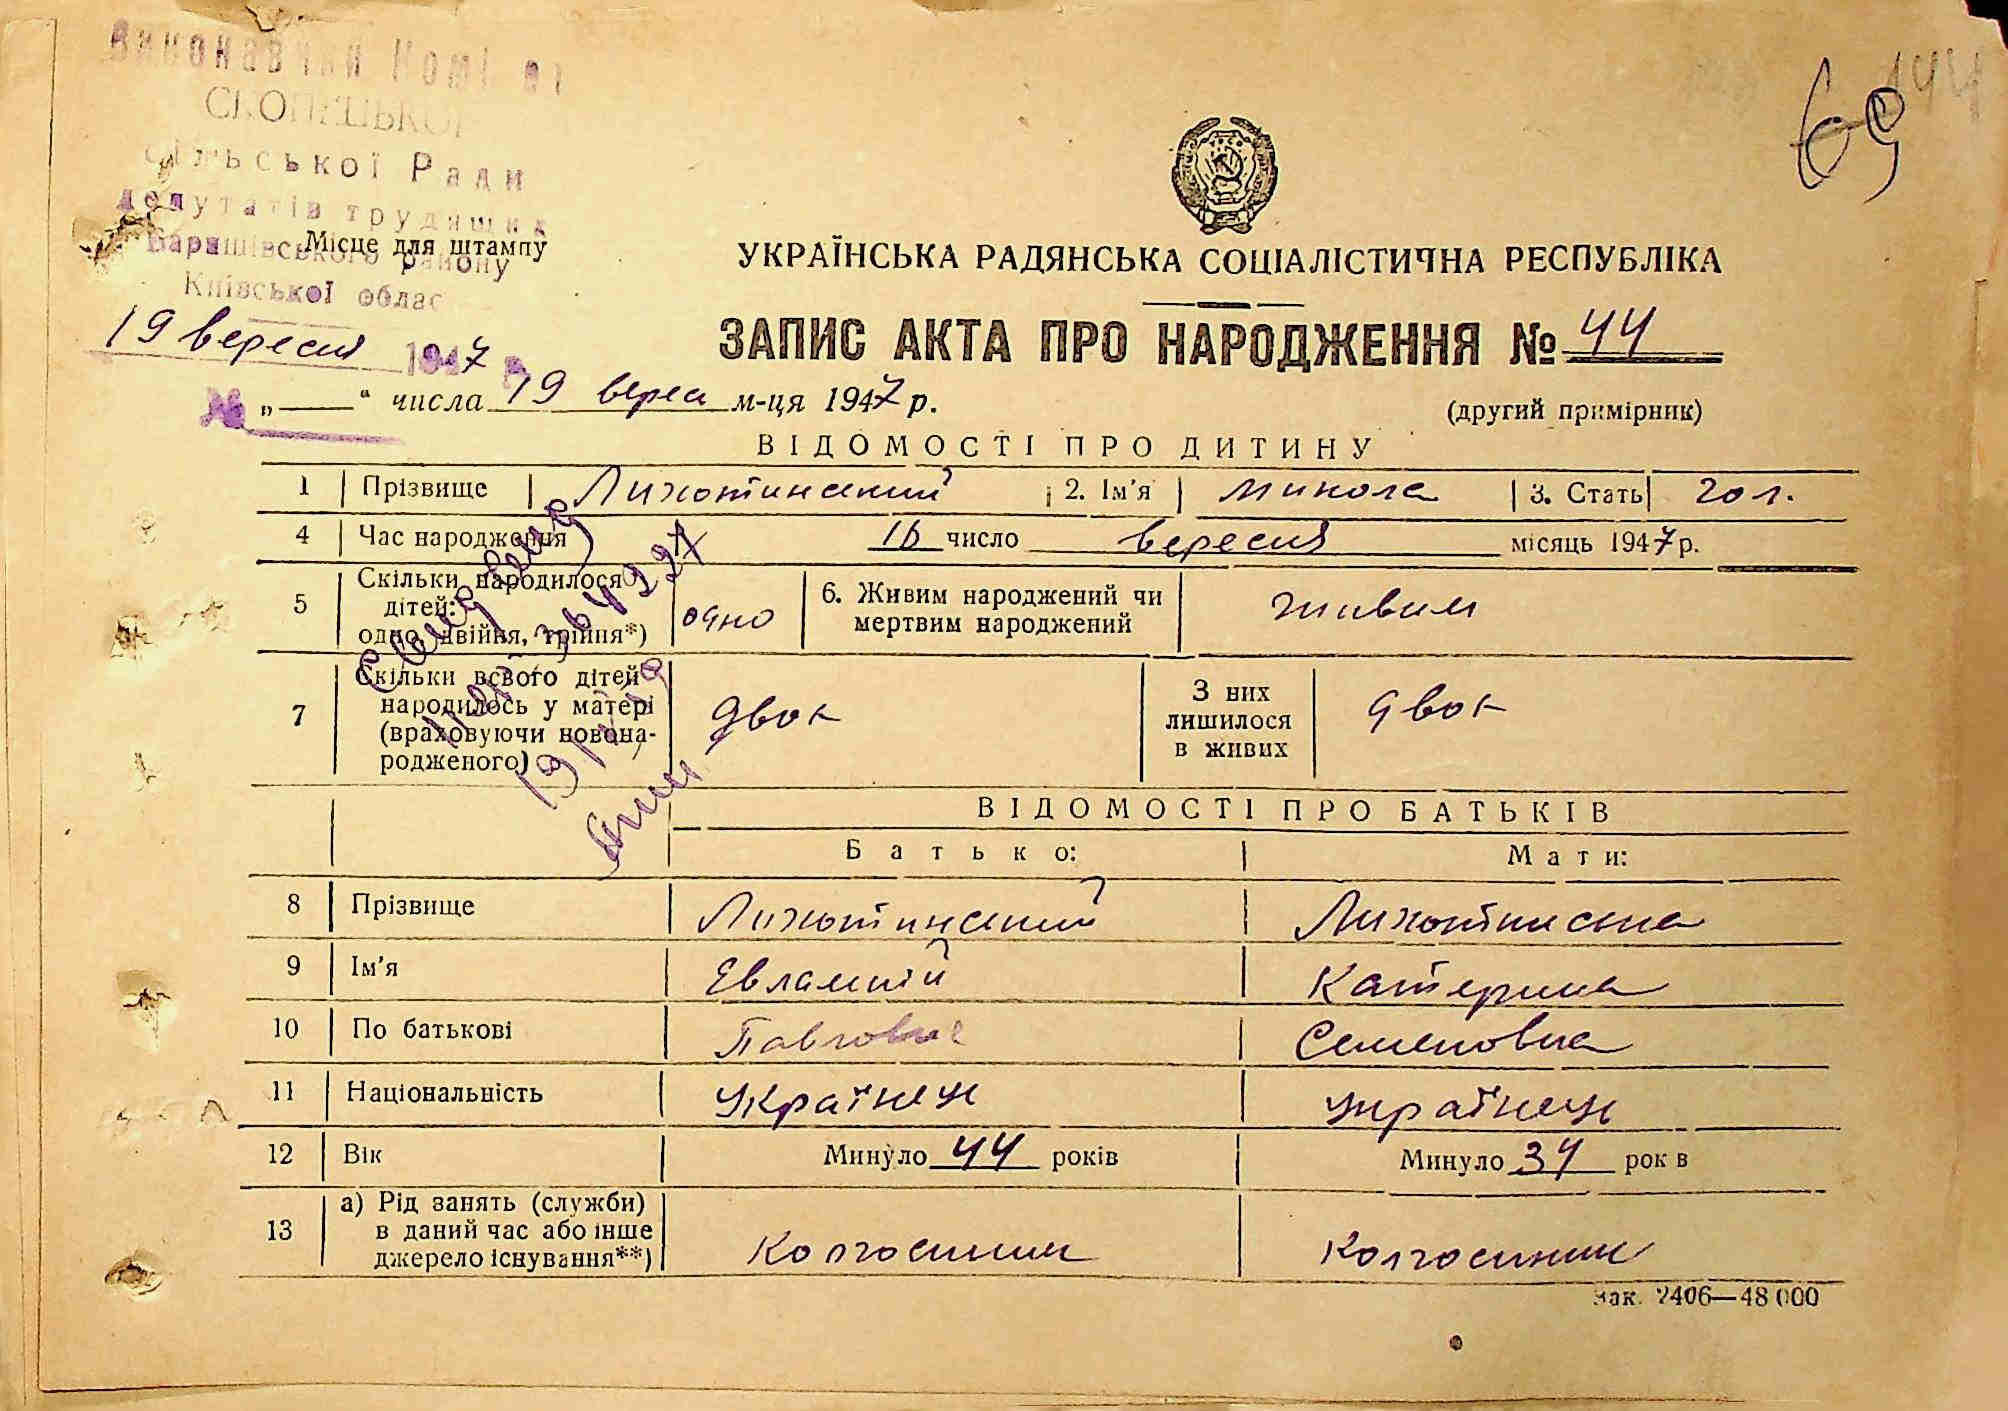 Виконавчий Комі ет
СКОПЕЦЬКОЇ
сільської Ради
депутатів трудящих
Баришівського району
Київської облас
Місце для штампу
19 вересня 1947 р.
№
69
144
УКРАЇНСЬКА РАДЯНСЬКА СОЦІАЛІСТИЧНА РЕСПУБЛІКА
ЗАПИС АКТА ПРО НАРОДЖЕННЯ № 44
„ “ числа 19 верес м-ця 1947 р.
(другий примірник)
ВІДОМОСТІ ПРО ДИТИНУ
1 Прізвище Лихотинський 2. Ім'я Микола 3. Стать чол.
4 Час народження 16 число вересня місяць 1947 р.
5 Скільки народилося дітей: одно, двійня, трійня*) одно 6. Живим народжений чи мертвим народжений живим
7 Скільки всього дітей народилось у матері (враховуючи новонародженого) двох З них лишилося в живих двох
364227
19/IX 49
ВІДОМОСТІ ПРО БАТЬКІВ
Батько: Мати:
8 Прізвище Лихотинский Лихотинська
9 Ім'я Евлампій Катерина
10 По батькові Павлович Семеновна
11 Національність Українец українец
12 Вік Минуло 44 років Минуло 34 рок в
13 а) Рід занять (служби) в даний час або інше джерело існування**) Колгоспник Колгоспник
Зак. 2406—48 000